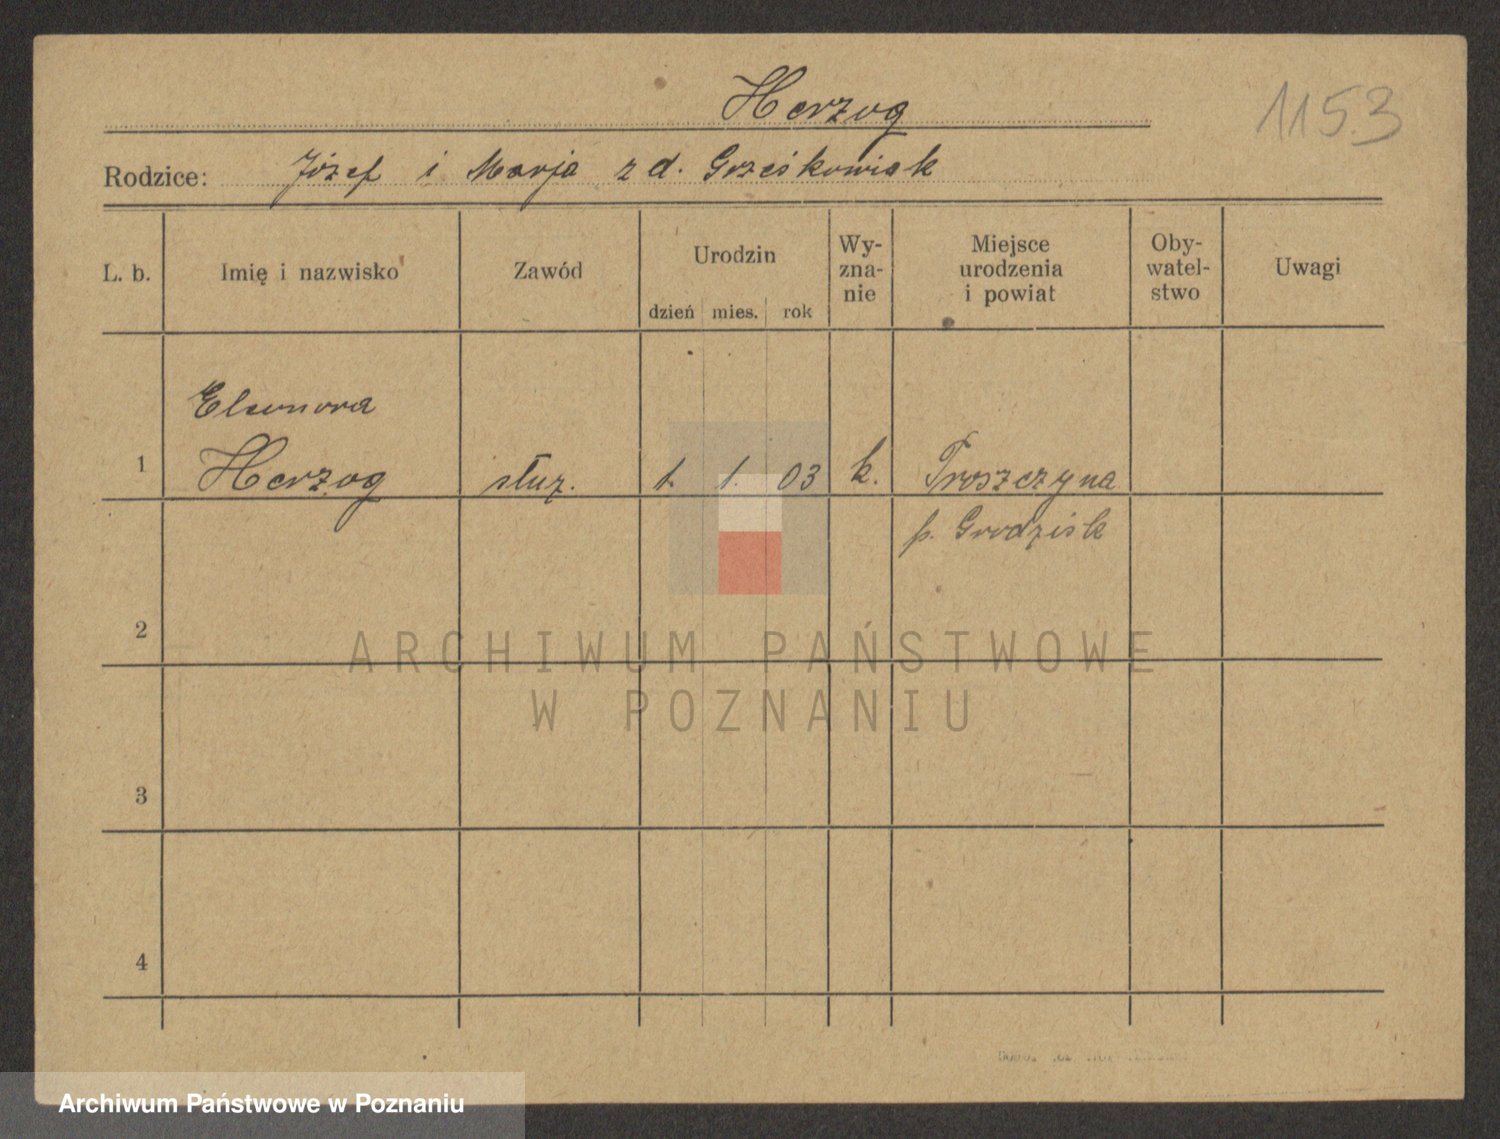 Herzog
1153
Rodzice: Józef i Marja z d. Grześkowiak
L. b. Imię i nazwisko Zawód Urodzin dzień mies. rok Wy-zna-nie Miejsce urodzenia i powiat Oby-watel-stwo Uwagi
Eleonora
1 Herzog służ. 1. 1. 03 k. Proszczyna
p. Grodzisk
2
ARCHIWUM PAŃSTWOWE
W POZNANIU
3
4
Archiwum Państwowe w Poznaniu